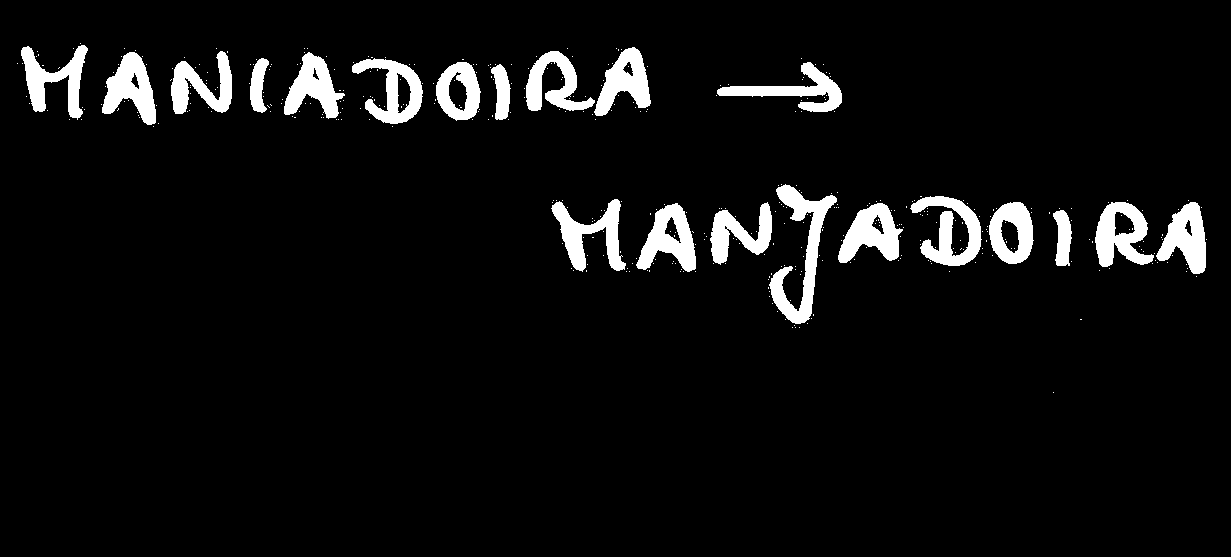 MANIADOIRA →
MANJADOIRA